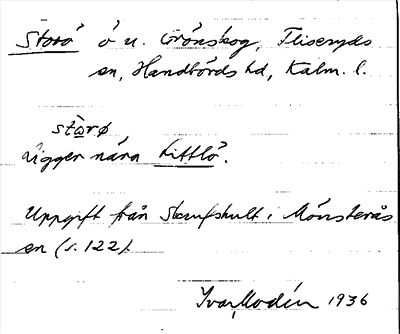 Storö ö u. Grönskog, Fliseryds
sn, Handbörds hd, Kalm. l.
stòrø
Ligger nära Littlö.
Uppgift från Skrufshult i Mönsterås
sn (s. 122).
Ivar Modén 1936